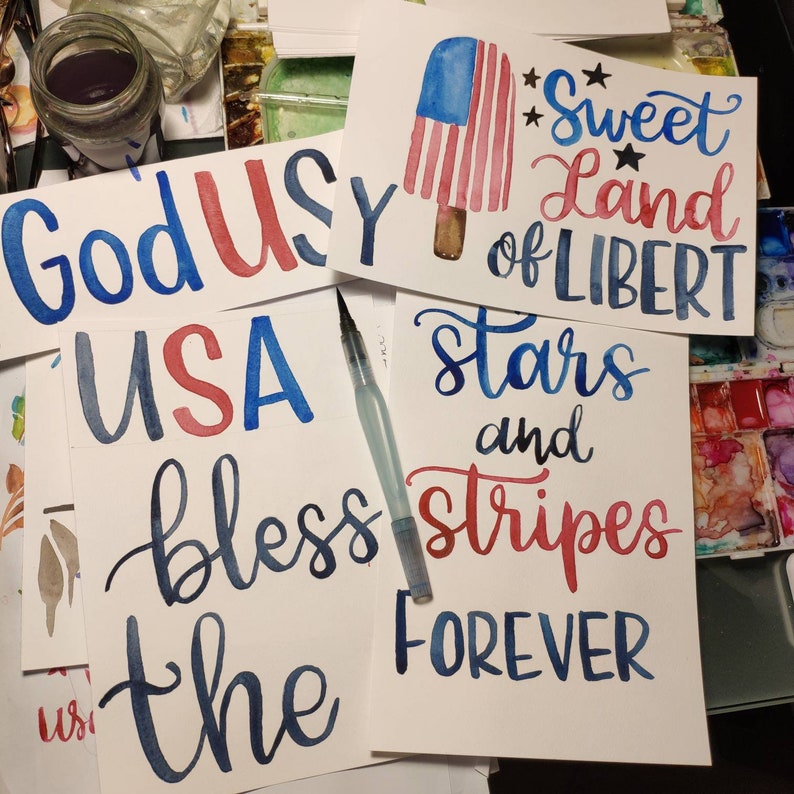 God USY
Sweet
Land
of LIBERT
USA
bless
the
stars
and
stripes
FOREVER
usa